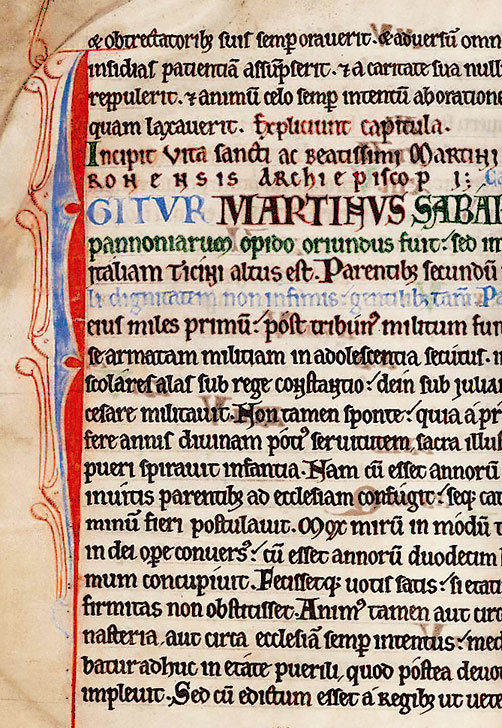 & obtrectatoribꝫ suis semp orauerit. & aduersū omn
insidias patientiā assūpserit. ⁊ a caritate sua null
reppulerit. ⁊ animū celo semp intentū ab oratione
quam laxauerit. Expliciunt capitula.
Incipit vita sancti ac beatissimi Martini
ronensis archiepiscopi:
GITVR MARTINVS SABAR
pannoniarum opido oriundus fuit: sed in
italiam ticini altus est. Parentibꝫ secundū
li dignitatem non infimis: gentilibꝫ tam̄. Pa
eius miles primū: post tribun᷒ militum fui
se armatam militiam in adolescentia secutus. in
scolares alas sub rege constantio: dein sub iulia
cesare militauit. Non tamen sponte: quia a pr
fere annis diuinam poti᷒ seruitutem, sacra illus
pueri spirauit infantia. Nam cū esset annorū
inuitis parentibꝫ ad ecclesiam confugit: seqꝫ cat
minū fieri postulauit. Mox mirū in modū t
in dei ope conuers᷒: cū esset annorū duodecim
mum concupiuit. Fecissetqꝫ uotis satis: si etati
firmitas non obstitisset. Anim᷒ tamen aut circ
nasteria, aut circa ecclesiā semp intentus: med
batur adhuc in etate puerili, quod postea deuo
impleuit. Sed cū edictum esset a regibꝫ ut uete